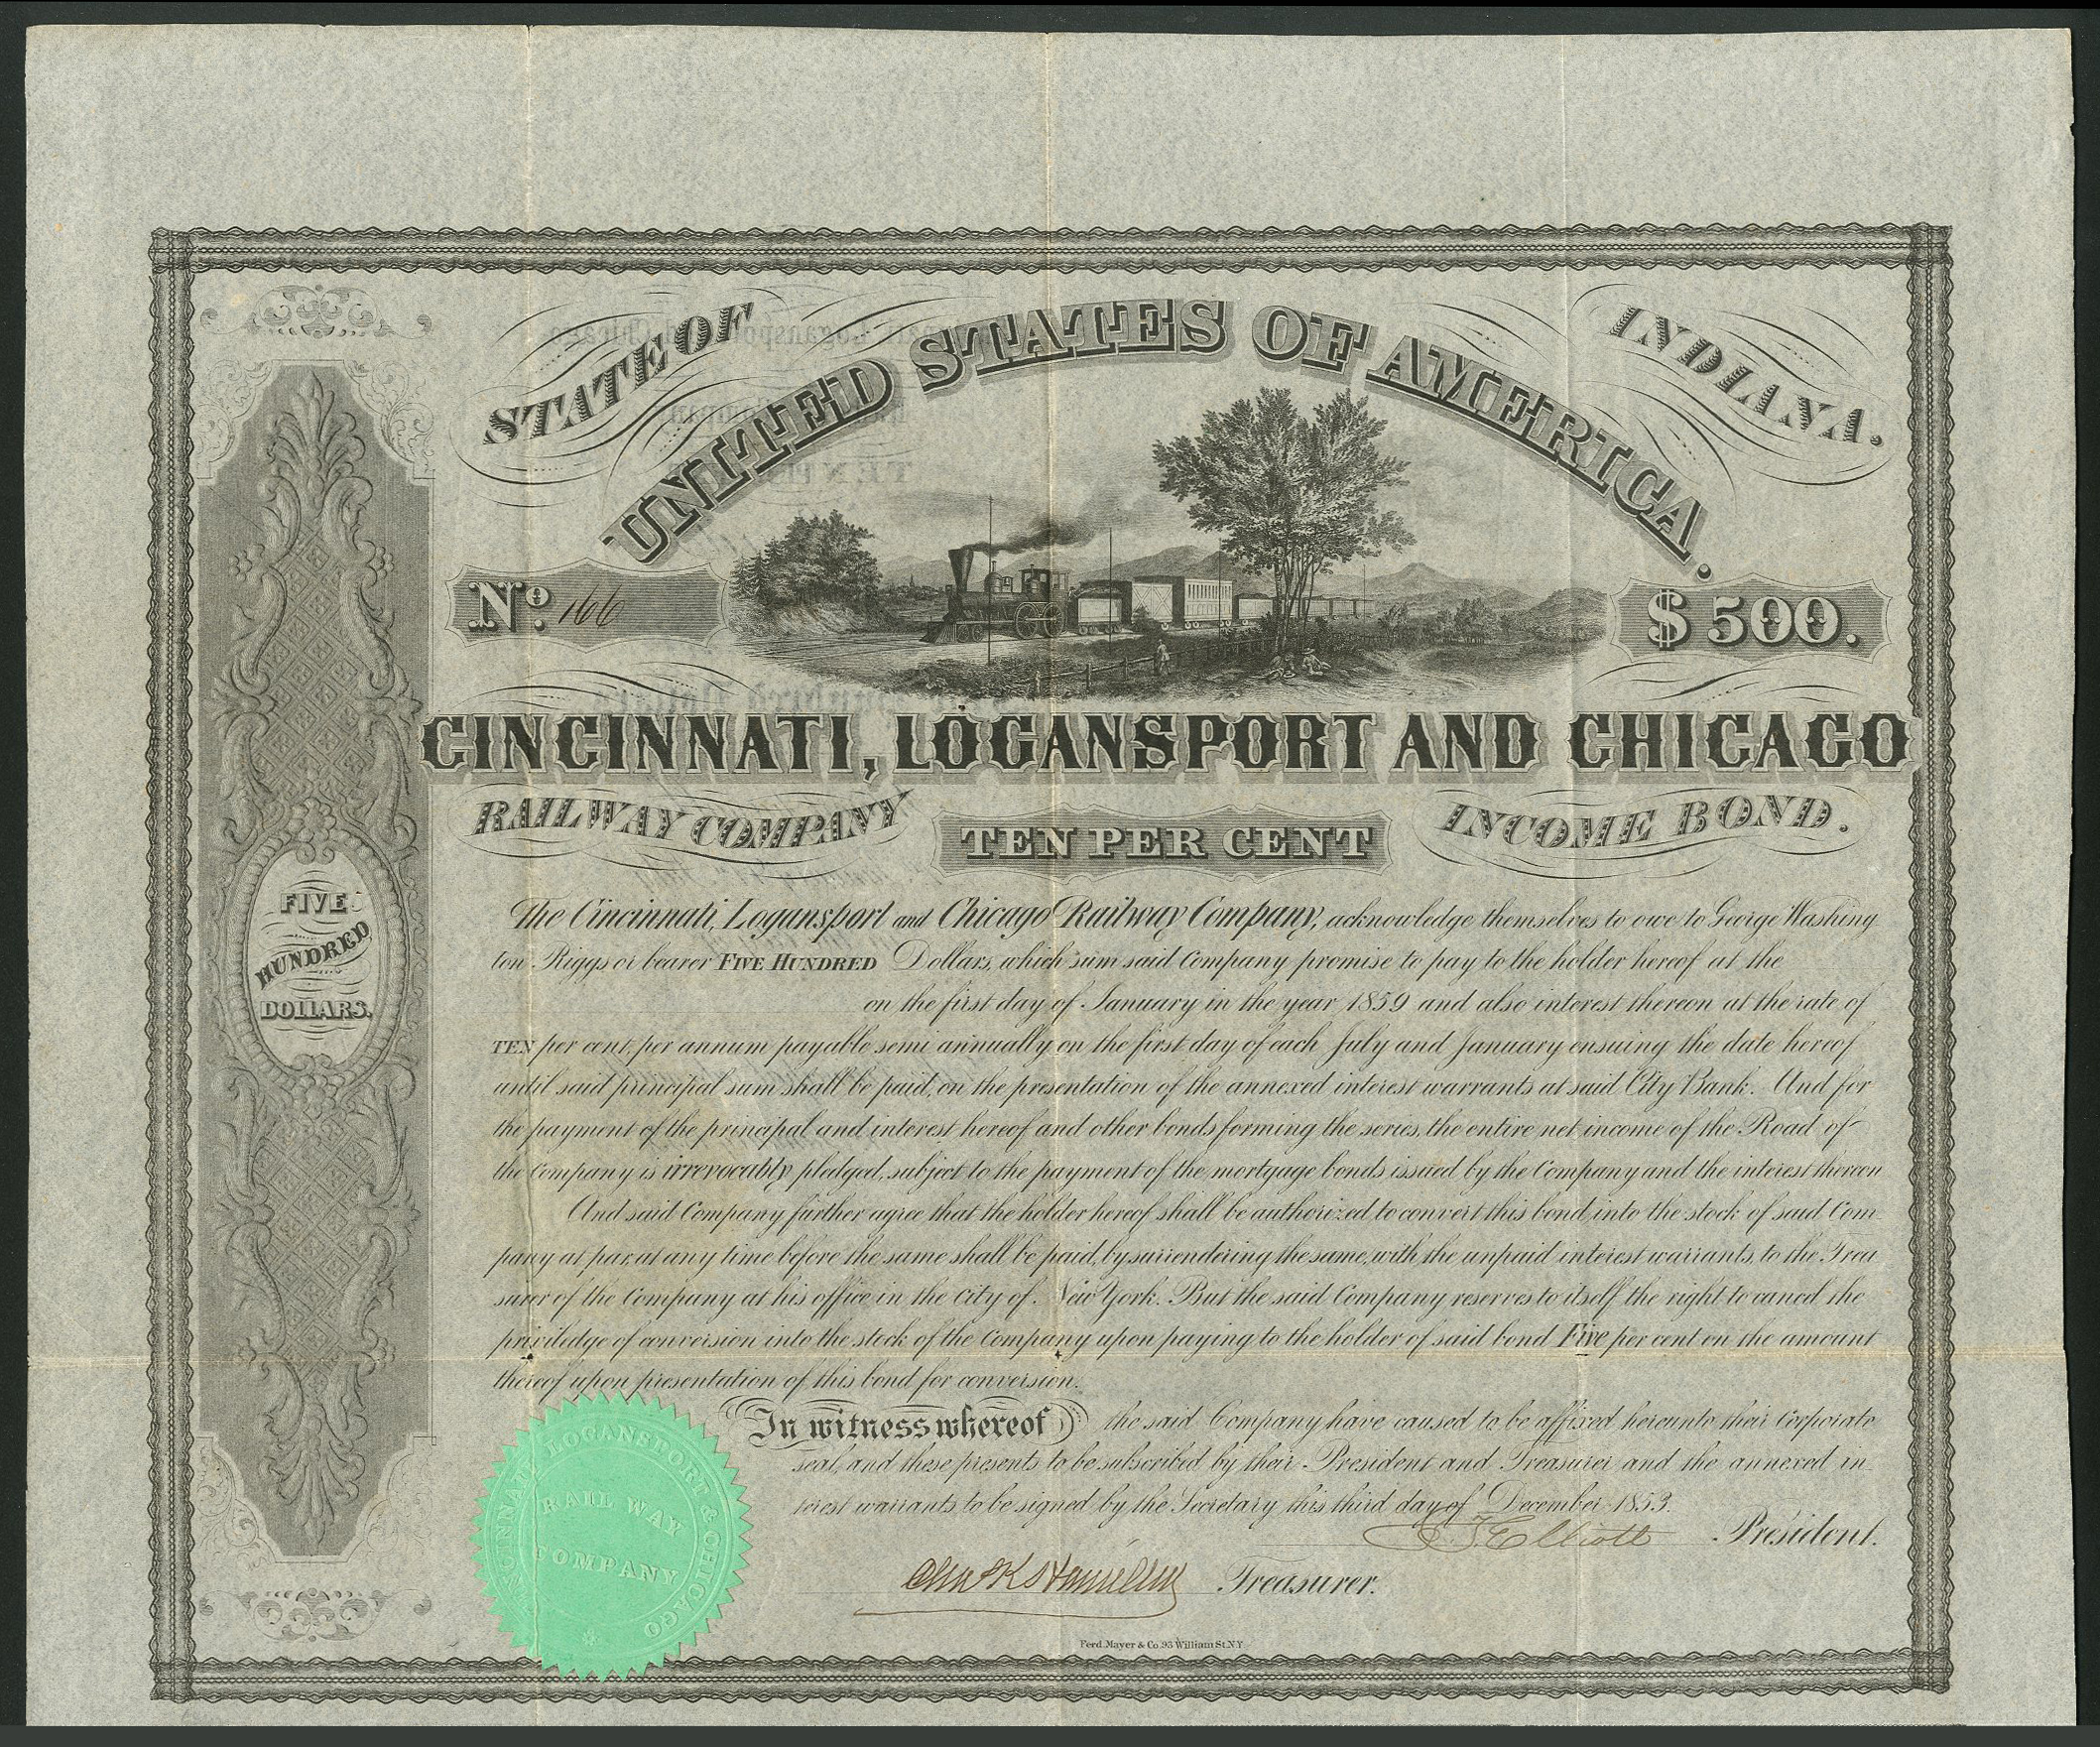 STATE OF
INDIANA.
UNITED STATES OF AMERICA.
No. 166
$500.
CINCINNATI, LOGANSPORT AND CHICAGO
RAILWAY COMPANY
TEN PER CENT
INCOME BOND.
FIVE
HUNDRED
DOLLARS.
The Cincinnati, Logansport and Chicago Railway Company, acknowledge themselves to owe to George Washing
ton Riggs or bearer FIVE HUNDRED Dollars, which sum said Company promise to pay to the holder hereof at the
on the first day of January in the year 1859 and also interest thereon at the rate of
TEN per cent, per annum payable semi annually on the first day of each July and January ensuing the date hereof
until said principal sum shall be paid, on the presentation of the annexed interest warrants at said City Bank. And for
the payment of the principal and interest hereof and other bonds forming the series, the entire net income of the Road of
the Company is irrevocably pledged, subject to the payment of the mortgage bonds issued by the Company and the interest thereon
And said Company further agree that the holder hereof shall be authorized to convert this bond, into the stock of said Com-
pany at par, at any time before the same shall be paid, by surrendering the same, with the unpaid interest warrants, to the Trea
surer of the Company at his office in the city of New York. But the said Company reserves to itself the right to cancel the
priviledge of conversion into the stock of the Company upon paying to the holder of said bond Five per cent on the amount
thereof upon presentation of this bond for conversion.
In witness whereof the said Company have caused to be affixed hereunto their Corporate
seal, and these presents to be subscribed by their President and Treasurer and the annexed in-
terest warrants to be signed by the Secretary this third day of December 1853.
Elliott President.
Treasurer.
CINCINNATI LOGANSPORT & CHICAGO
RAIL WAY
COMPANY
Ferd. Mayer & Co. 93 William St. N.Y